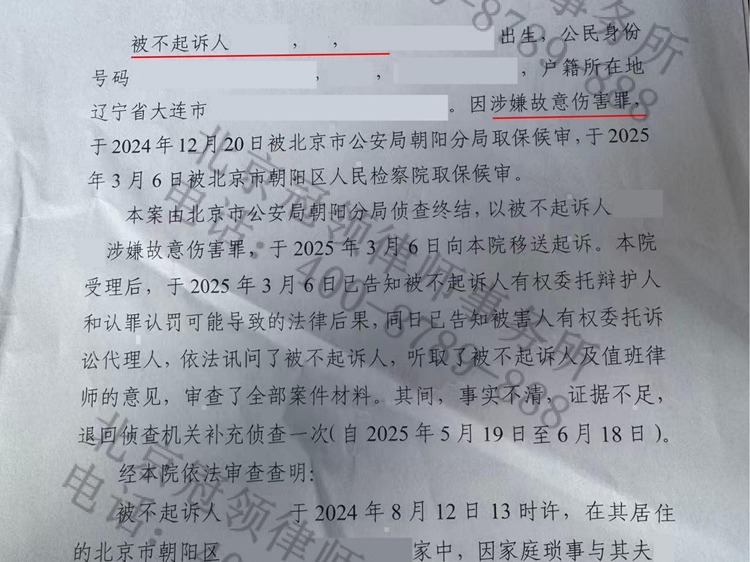 被不起诉人 , , 出生，公民身份
号码 , , ，户籍所在地
辽宁省大连市 。因涉嫌故意伤害罪，
于2024年12月20日被北京市公安局朝阳分局取保候审，于2025
年3月6日被北京市朝阳区人民检察院取保候审。
本案由北京市公安局朝阳分局侦查终结，以被不起诉人
涉嫌故意伤害罪，于2025年3月6日向本院移送起诉。本院
受理后，于2025年3月6日已告知被不起诉人有权委托辩护人
和认罪认罚可能导致的法律后果，同日已告知被害人有权委托诉
讼代理人，依法讯问了被不起诉人，听取了被不起诉人及值班律
师的意见，审查了全部案件材料。其间，事实不清，证据不足，
退回侦查机关补充侦查一次（自2025年5月19日至6月18日）。
经本院依法审查查明：
被不起诉人 于2024年8月12日13时许，在其居住
的北京市朝阳区 家中，因家庭琐事与其夫
北京冠领律师事务所
电话：400-8789-888
北京冠领律师
电话：